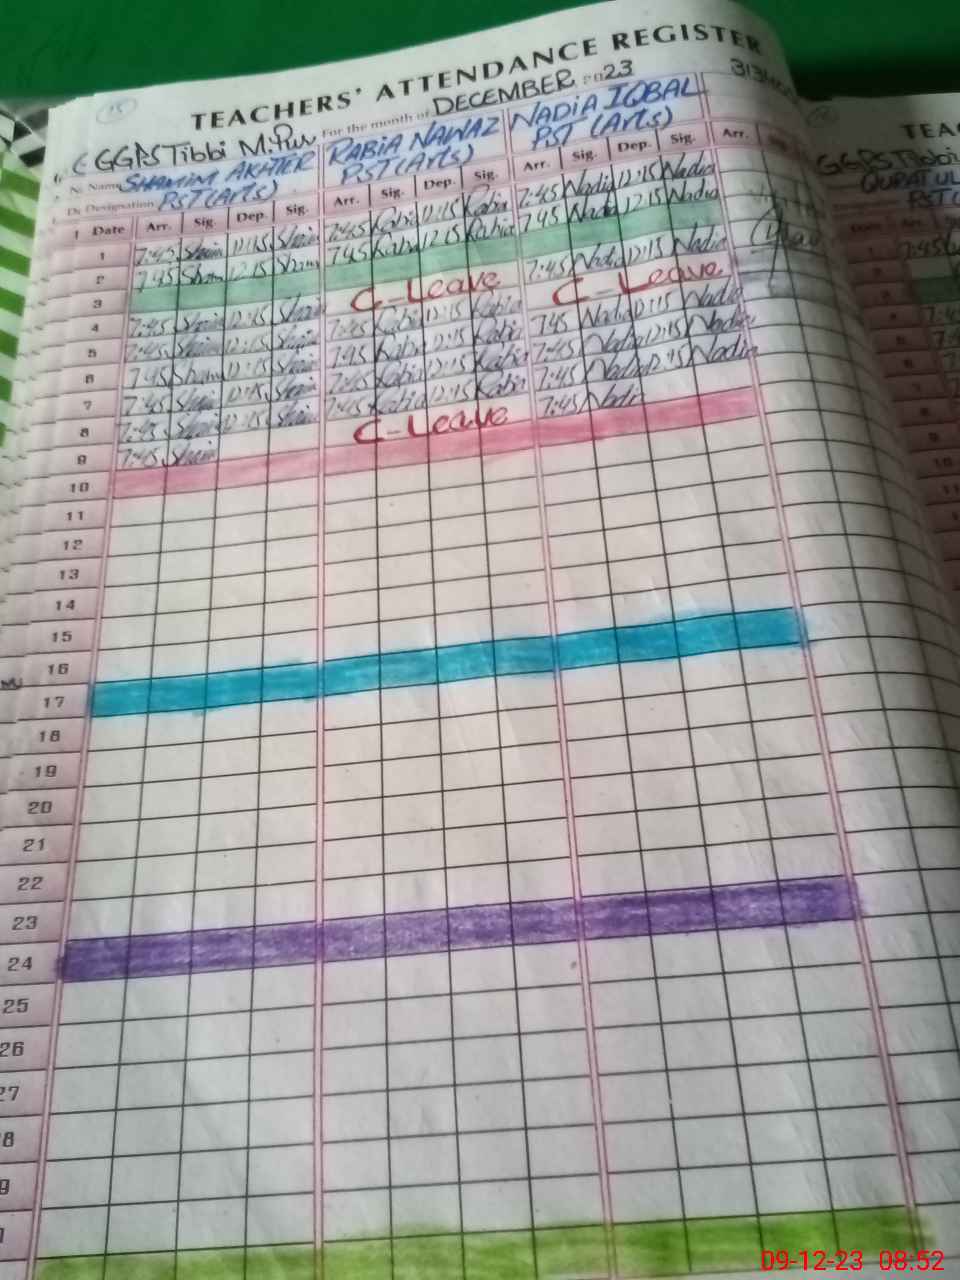 15
TEACHERS' ATTENDANCE REGISTER
GGPS Tibbi M.Pur For the month of DECEMBER 2023
Name SHAMIM AKHTER RABIA NAWAZ NADIA IQBAL
Designation PST (Arts) PST (Arts) PST (Arts)
Date Arr. Sig. Dep. Sig. Arr. Sig. Dep. Sig. Arr. Sig. Dep. Sig. Arr.
1 7:45 Sham 12:15 Sham 7:45 Rabia 12:15 Rabia 7:45 Nadia 12:15 Nadia
2 7:45 Sham 12:15 Sham 7:45 Rabia 12:15 Rabia 7:45 Nadia 12:15 Nadia
3
4 7:45 Sham 12:15 Sham C-Leave 7:45 Nadia 12:15 Nadia
5 7:45 Sham 12:15 Sham 7:45 Rabia 12:15 Rabia C-Leave
6 7:45 Sham 12:15 Sham 7:45 Rabia 12:15 Rabia 7:45 Nadia 12:15 Nadia
7 7:45 Sham 12:15 Sham 7:45 Rabia 12:15 Rabia 7:45 Nadia 12:15 Nadia
8 7:45 Sham 12:15 Sham 7:45 Rabia 12:15 Rabia 7:45 Nadia 12:45 Nadia
9 7:45 Sham C-Leave 7:45 Nadia
10
11
12
13
14
15
16
17
18
19
20
21
22
23
24
25
26
27
8
9
TEA
GGPS Tibbi
QURAT UL
PST (
09-12-23 08:52